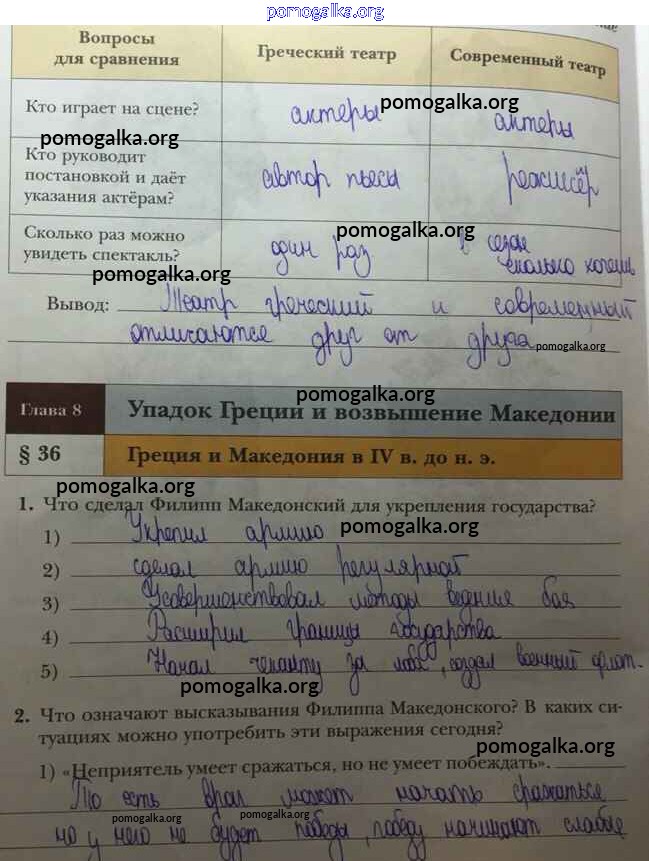 pomogalka.org
Вопросы для сравнения Греческий театр Современный театр
Кто играет на сцене? актеры pomogalka.org актеры
pomogalka.org
Кто руководит постановкой и даёт указания актёрам? автор пьесы режиссёр
pomogalka.org
Сколько раз можно увидеть спектакль? один раз в сезоне сколько хочешь
pomogalka.org
Вывод: Театр греческий и современный
отличаются друг от друга pomogalka.org
pomogalka.org
Глава 8 Упадок Греции и возвышение Македонии
§ 36 Греция и Македония в IV в. до н. э.
pomogalka.org
1. Что сделал Филипп Македонский для укрепления государства?
1) Укрепил армию pomogalka.org
2) сделал армию регулярной
3) Усовершенствовал методы ведения боя
4) Расширил границы государства
5) Начал чеканту за, создал военный флот.
pomogalka.org
2. Что означают высказывания Филиппа Македонского? В каких си-
туациях можно употребить эти выражения сегодня?
pomogalka.org
1) «Неприятель умеет сражаться, но не умеет побеждать».
pomogalka.org
То есть враг может начать сражаться
pomogalka.org pomogalka.org
но у него не будет победы, победу начинают слабые